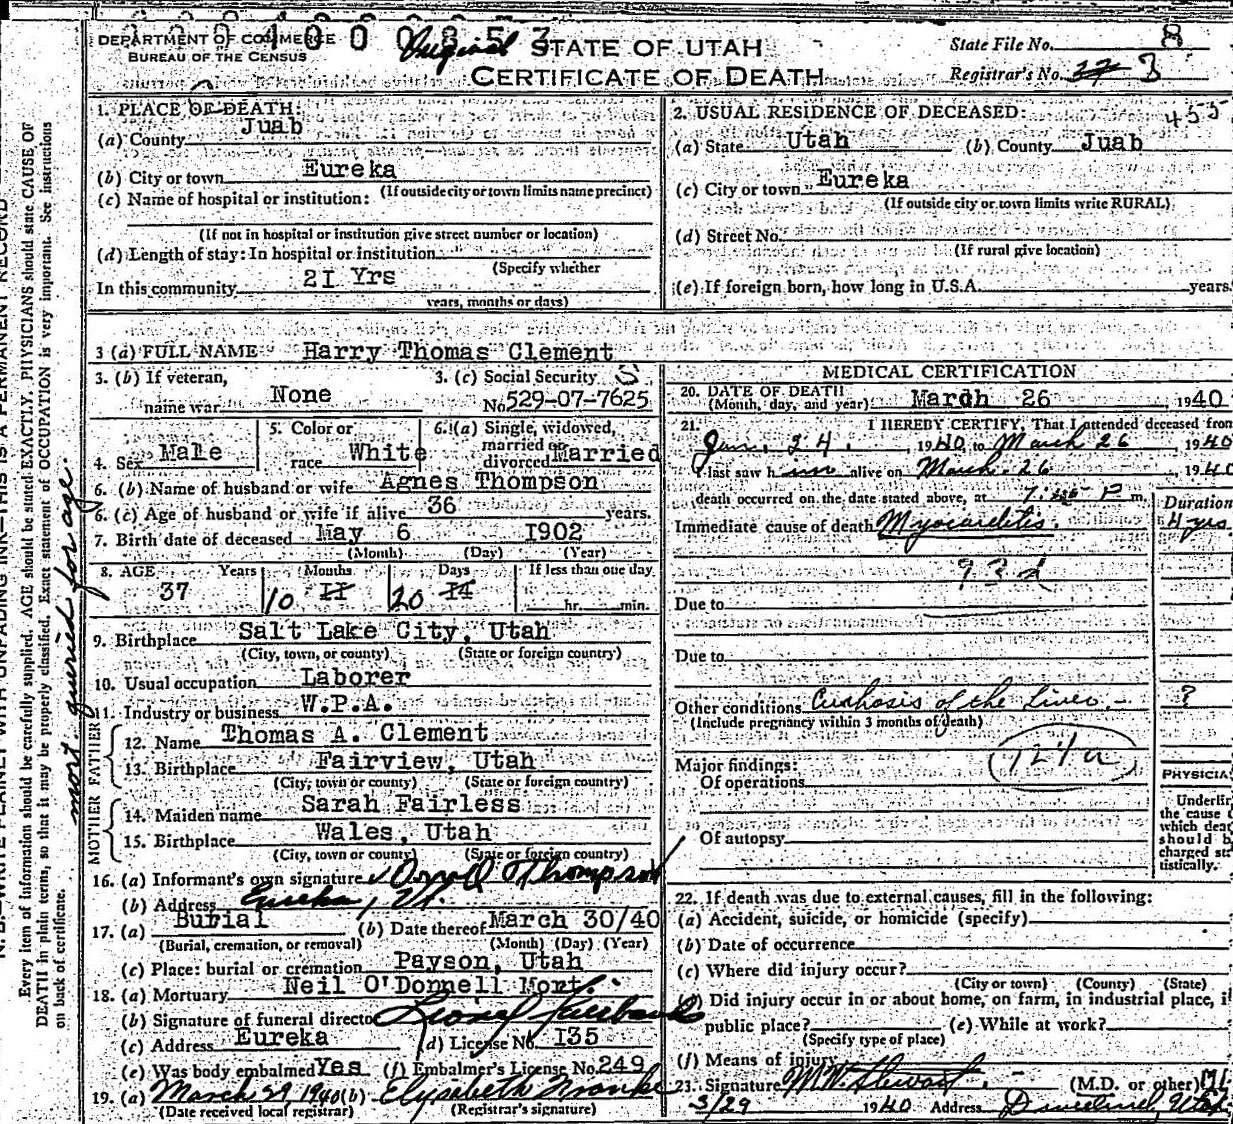 DEPARTMENT OF COMMERCE
BUREAU OF THE CENSUS
Original STATE OF UTAH
CERTIFICATE OF DEATH
State File No. 8
Registrar's No. 27 3
1. PLACE OF DEATH:
(a) County Juab
(b) City or town Eureka
(If outside city or town limits name precinct)
(c) Name of hospital or institution:
(If not in hospital or institution give street number or location)
(d) Length of stay: In hospital or institution
(Specify whether
In this community 2I Yrs
years, months or days)
2. USUAL RESIDENCE OF DECEASED: 455
(a) State Utah (b) County Juab
(c) City or town Eureka
(If outside city or town limits write RURAL)
(d) Street No.
(If rural give location)
(e) If foreign born, how long in U.S.A. years.
3 (a) FULL NAME Harry Thomas Clement
3. (b) If veteran, name war None
3. (c) Social Security No 529-07-7625
4. Sex Male
5. Color or race White
6. (a) Single, widowed, married or divorced Married
6. (b) Name of husband or wife Agnes Thompson
6. (c) Age of husband or wife if alive 36 years.
7. Birth date of deceased May 6 I902
(Month) (Day) (Year)
8. AGE Years Months Days If less than one day
37 10 II 20 I4 hr. min.
9. Birthplace Salt Lake City, Utah
(City, town, or county) (State or foreign country)
10. Usual occupation Laborer
11. Industry or business W.P.A.
FATHER
12. Name Thomas A. Clement
13. Birthplace Fairview, Utah
(City, town or county) (State or foreign country)
MOTHER
14. Maiden name Sarah Fairless
15. Birthplace Wales, Utah
(City, town or county) (State or foreign country)
16. (a) Informant's own signature Thompson
(b) Address Eureka, Ut.
17. (a) Burial (b) Date thereof March 30/40
(Burial, cremation, or removal) (Month) (Day) (Year)
(c) Place: burial or cremation Payson, Utah
18. (a) Mortuary Neil O'Donnell Mort.
(b) Signature of funeral director Lionel Fairbanks
(c) Address Eureka (d) License No. I35
(e) Was body embalmed Yes (f) Embalmer's License No. 249
19. (a) March 29, 1940 (b) Elysabeth
(Date received local registrar) (Registrar's signature)
MEDICAL CERTIFICATION
20. DATE OF DEATH
(Month, day, and year) March 26 1940
21. I HEREBY CERTIFY, That I attended deceased from
Jan. 24. 1940, to March 26 1940
I last saw him alive on March. 26 1940
death occurred on the date stated above, at P m.
Duration
Immediate cause of death Myocarditis. 4 yrs
93d
Due to
Due to
Other conditions Cirrhosis of the Liver. ?
(Include pregnancy within 3 months of death)
124a
Major findings:
Of operations
Of autopsy
PHYSICIA
Underlin
the cause
which deat
should b
charged sta
tistically.
22. If death was due to external causes, fill in the following:
(a) Accident, suicide, or homicide (specify)
(b) Date of occurrence
(c) Where did injury occur?
(City or town) (County) (State)
(d) Did injury occur in or about home, on farm, in industrial place, i
public place? (e) While at work?
(Specify type of place)
(f) Means of injury
23. Signature M.W. Stewart. (M.D. or other)
3/29 1940 Address Dividend, Utah
Every item of information should be carefully supplied. AGE should be stated EXACTLY. PHYSICIANS should state CAUSE OF
DEATH in plain terms, so that it may be properly classified. Exact statement of OCCUPATION is very important. See instructions
on back of certificate.
N. B.—WRITE PLAINLY WITH UNFADING INK—THIS IS A PERMANENT RECORD
mort. queried for age.